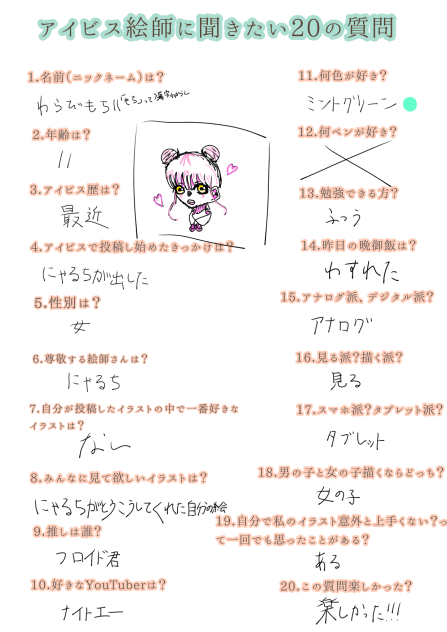 アイビス絵師に聞きたい20の質問
1.名前(ニックネーム)は?
わらびもち
2.年齢は?
11
3.アイビス歴は?
最近
4.アイビスで投稿し始めたきっかけは?
にゃるちが出した
5.性別は?
女
6.尊敬する絵師さんは?
にゃるち
7.自分が投稿したイラストの中で一番好きな
イラストは?
なし
8.みんなに見て欲しいイラストは?
にゃるちがとうこうしてくれた自分の絵
9.推しは誰?
フロイド君
10.好きなYouTuberは?
ナイトエー
11.何色が好き?
ミントグリーン
12.何ペンが好き?
13.勉強できる方?
ふつう
14.昨日の晩御飯は?
わすれた
15.アナログ派、デジタル派?
アナログ
16.見る派?描く派?
見る
17.スマホ派?タブレット派?
タブレット
18.男の子と女の子描くならどっち?
女の子
19.自分で私のイラスト意外と上手くない?っ
て一回でも思ったことがある?
ある
20.この質問楽しかった?
楽しかった!!!